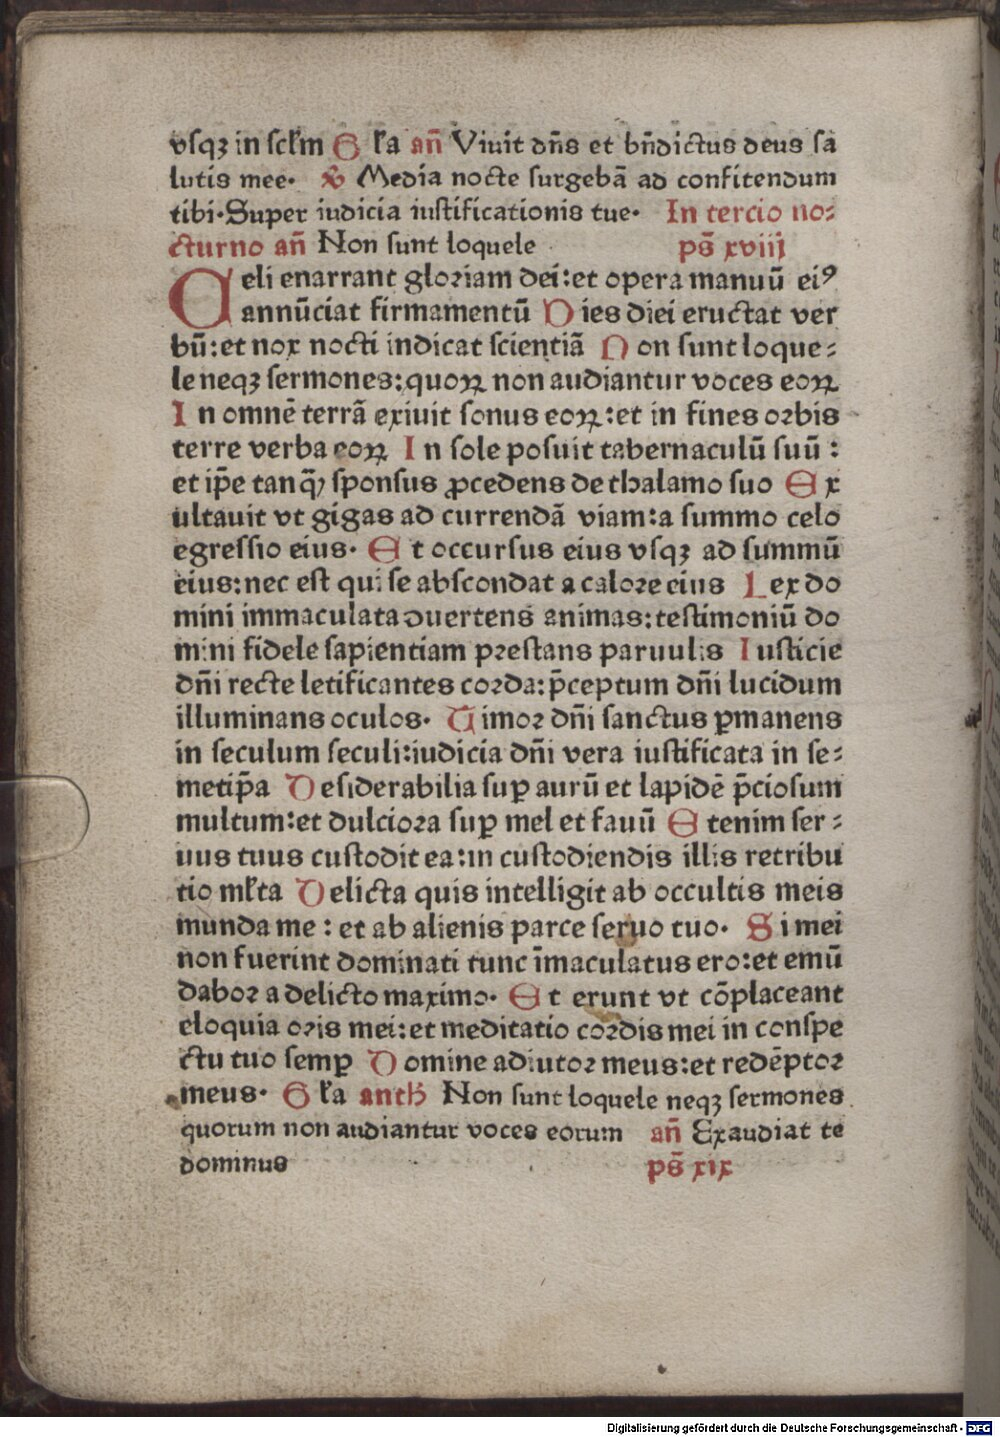 vsqꝫ in sclm̄ Gl̄a an̄ Viuit dn̄s et bn̄dictus deus sa
lutis mee. ℣ Media nocte surgebā ad confitendum
tibi. Super iudicia iustificationis tue. In tercio no⸗
cturno an̄ Non sunt loquele ps̄ xviij
Celi enarrant gloriam dei: et opera manuū eiꝰ
annūciat firmamentū Dies diei eructat ver
bū: et nox nocti indicat scientiā Non sunt loque⸗
le neqꝫ sermones: quoꝝ non audiantur voces eoꝝ
In omnē terrā exiuit sonus eoꝝ: et in fines orbis
terre verba eoꝝ In sole posuit tabernaculū suū :
et ip̄e tanq̄ꝫ sponsus ꝓcedens de thalamo suo Ex
ultauit vt gigas ad currendā viam: a summo celo
egressio eius. Et occursus eius vsqꝫ ad summū
eius: nec est qui se abscondat a calore eius Lex do
mini immaculata ꝯuertens animas: testimoniū do
mini fidele sapientiam prestans paruulis Iusticie
dn̄i recte letificantes corda: p̄ceptum dn̄i lucidum
illuminans oculos. Timor dn̄i sanctus ꝑmanens
in seculum seculi: iudicia dn̄i vera iustificata in se⸗
metip̄a Desiderabilia suꝑ aurū et lapidē p̄ciosum
multum: et dulciora suꝑ mel et fauū Etenim ser⸗
uus tuus custodit ea: in custodiendis illis retribu
tio ml̄ta Delicta quis intelligit ab occultis meis
munda me : et ab alienis parce seruo tuo. Si mei
non fuerint dominati tunc īmaculatus ero: et emū
dabor a delicto maximo. Et erunt vt cōplaceant
eloquia oris mei: et meditatio cordis mei in conspe
ctu tuo semꝑ Domine adiutor meus: et redēptor
meus. Gl̄a anth̄ Non sunt loquele neqꝫ sermones
quorum non audiantur voces eorum an̄ Exaudiat te
dominus ps̄ xix
Digitalisierung gefördert durch die Deutsche Forschungsgemeinschaft - DFG